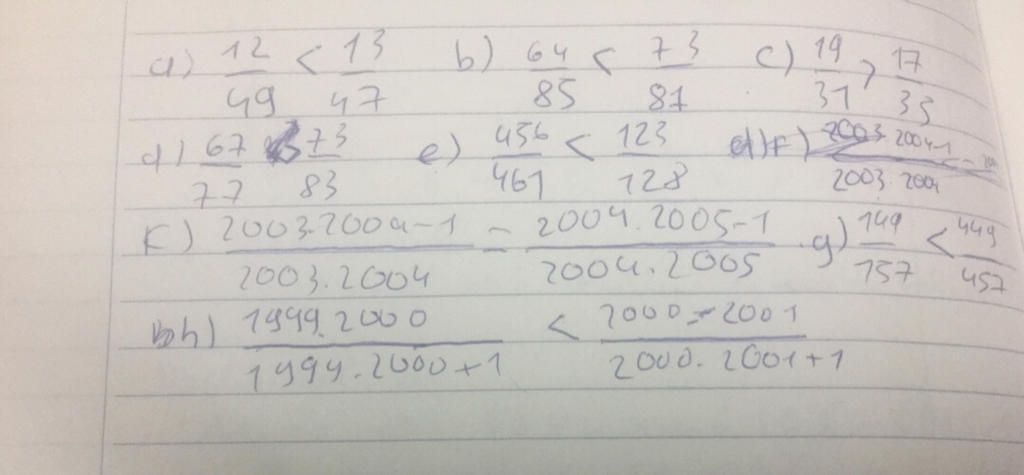 a) 12/49 < 13/47 b) 64/85 < 73/81 c) 19/31 > 17/35
d) 67/77 < 73/83 e) 456/461 < 123/128 f)
f) 2003.2004-1/2003.2004 = 2004.2005-1/2004.2005 g) 149/157 < 449/457
h) 1999.2000/1999.2000+1 < 2000.2001/2000.2001+1